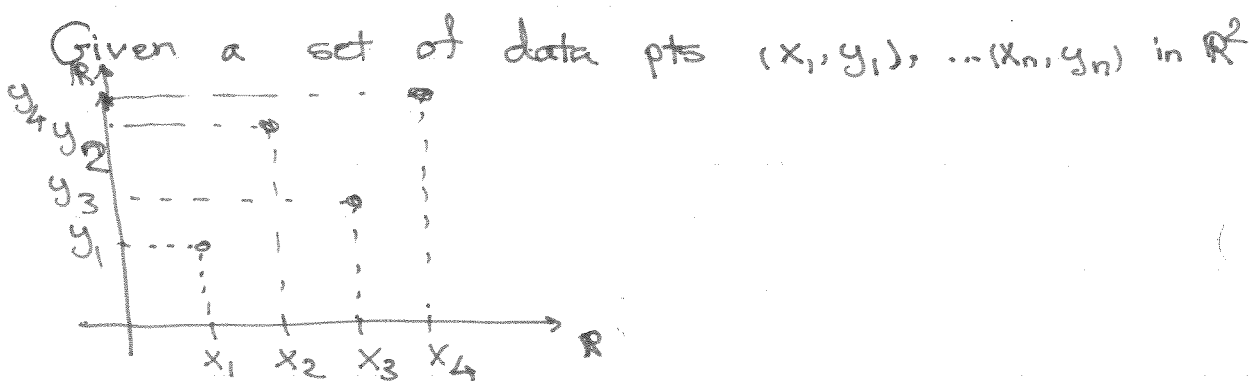 Given a set of data pts (x₁, y₁), ...(xₙ, yₙ) in ℝ²
ℝ
y₄
y₂
y₃
y₁
x₁ x₂ x₃ x₄
ℝ